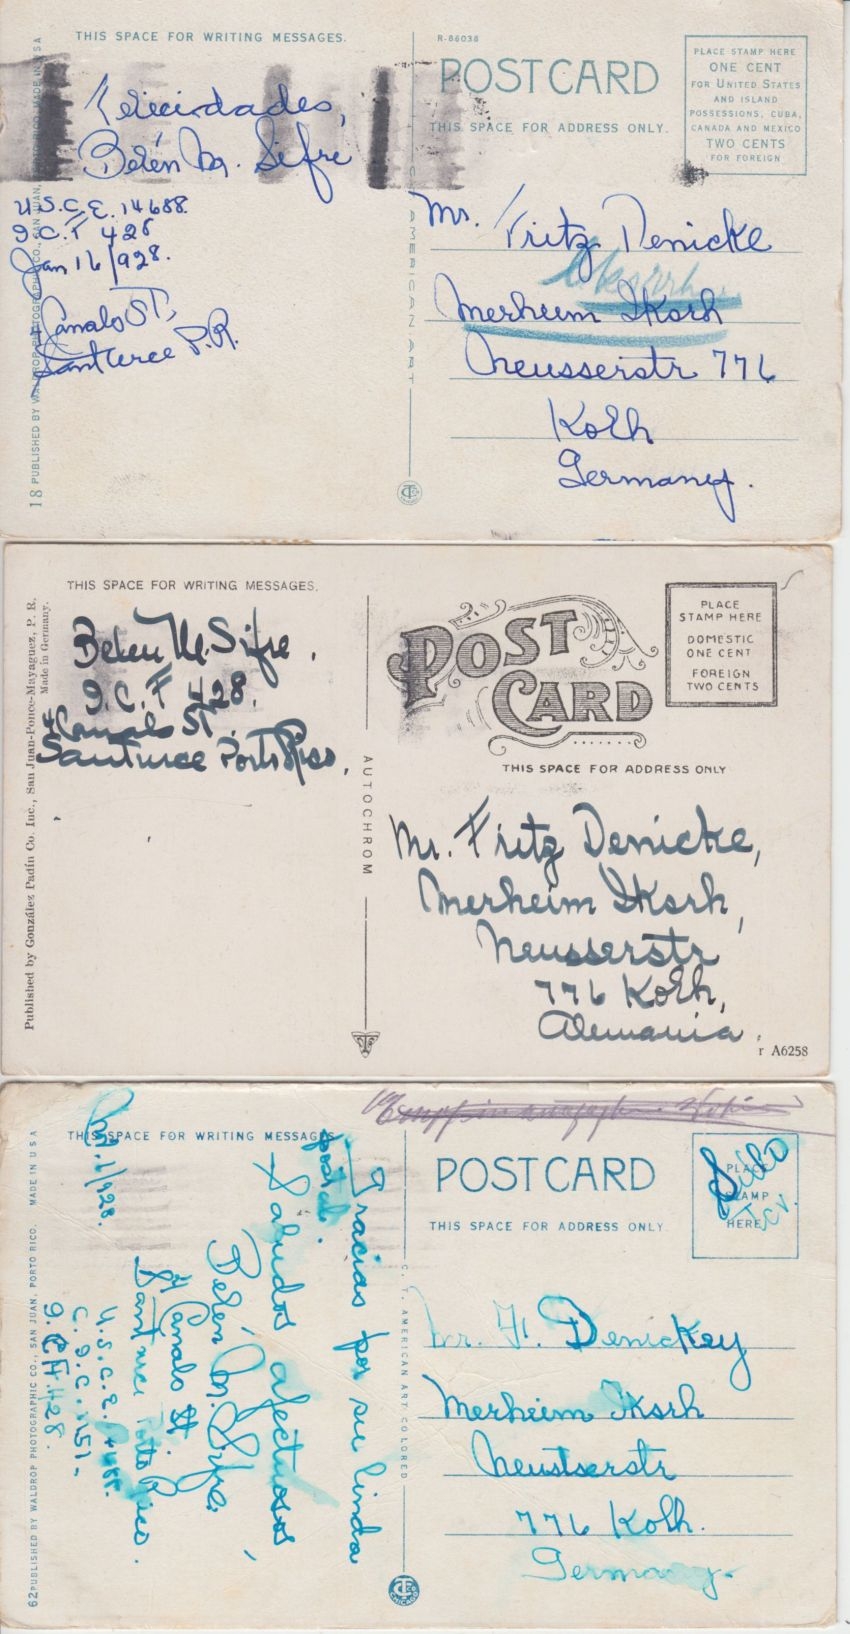 THIS SPACE FOR WRITING MESSAGES.
Felicidades,
Belén M. Sifre
U.S.C.E. 14688.
I.C.F 428
Jan 16/928.
4 Canals ST,
Santurce P.R.
18 PUBLISHED BY WALDROP PHOTOGRAPHIC CO., SAN JUAN, PORTO RICO. MADE IN U S A
C. T. AMERICAN ART
R-86038
POST CARD
THIS SPACE FOR ADDRESS ONLY.
PLACE STAMP HERE
ONE CENT
FOR UNITED STATES
AND ISLAND
POSSESSIONS, CUBA,
CANADA AND MEXICO
TWO CENTS
FOR FOREIGN
Mr. Fritz Denicke
Merheim Iksrh
Neusserstr 776
Kolh
Germany.
THIS SPACE FOR WRITING MESSAGES.
Belen M. Sifre.
I.C.F 428.
4 Canals ST.
Santurce Porto Rico,
Published by González Padín Co. Inc., San Juan-Ponce-Mayaguez, P. R.
Made in Germany.
AUTOCHROM
POST CARD
THIS SPACE FOR ADDRESS ONLY
PLACE
STAMP HERE
DOMESTIC
ONE CENT
FOREIGN
TWO CENTS
Mr. Fritz Denicke,
Merheim Iksrh,
Neusserstr
776 Kolh,
Alemania.
r A6258
THIS SPACE FOR WRITING MESSAGES
Gracias por su linda
postal.
Saludos afectuosos,
Belén M. Sifre,
4 Canals St.
Santurce Porto Rico.
U.S.C.E. 14688.
C.I.C. 1151-
I.C.F. 428.
62 PUBLISHED BY WALDROP PHOTOGRAPHIC CO., SAN JUAN, PORTO RICO. MADE IN U S A
C. T. AMERICAN ART COLORED
POST CARD
THIS SPACE FOR ADDRESS ONLY.
PLACE
STAMP
HERE
Mr. F. Denickey
Merheim Iksrh
Neustserstr
776 Kolh.
Germany.